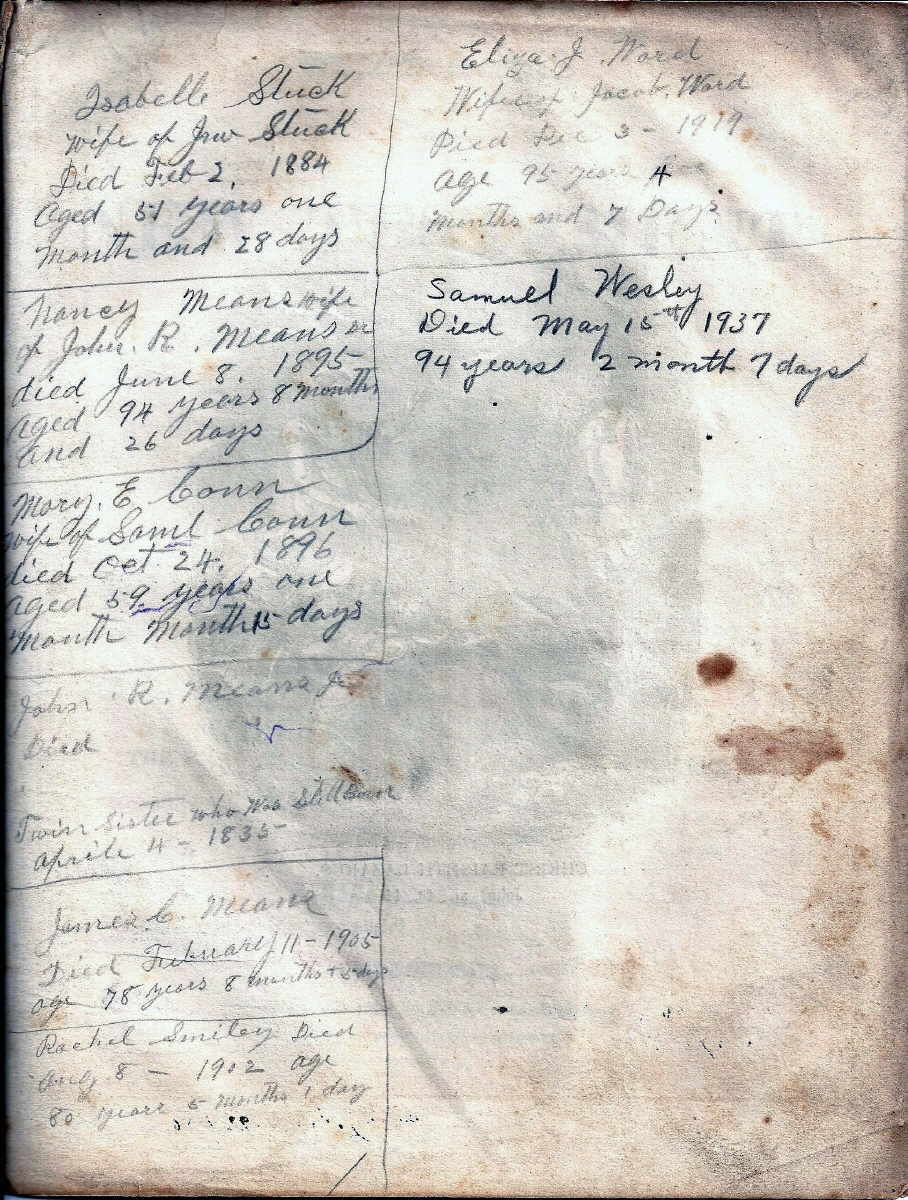 Isabelle Stuck
wife of Jno Stuck
Died Feb 2, 1884
aged 51 years one
month and 28 days
Nancy Means wife
of John. R. Means
died June 8, 1895
aged 94 years 8 months
and 26 days
Mary. E Conn
wife of Saml Conn
died Oct 24, 1896
aged 59 years one
month month 15 days
John R. Means Jr
Died
Twin Sister who Was Still Born
aprile 4 - 1835
James C. Means
Died February 11 - 1905
age 78 years 8 months + 5 days
Rachel Smiley Died
Aug 8 - 1902 age
80 years 5 months 1 day
Eliza J. Word
Wife of Jacob. Word
Died Dec 3 - 1919
age 95 years 4
months and 7 Days
Samuel Wesley
Died May 15th 1937
94 years 2 month 7 days